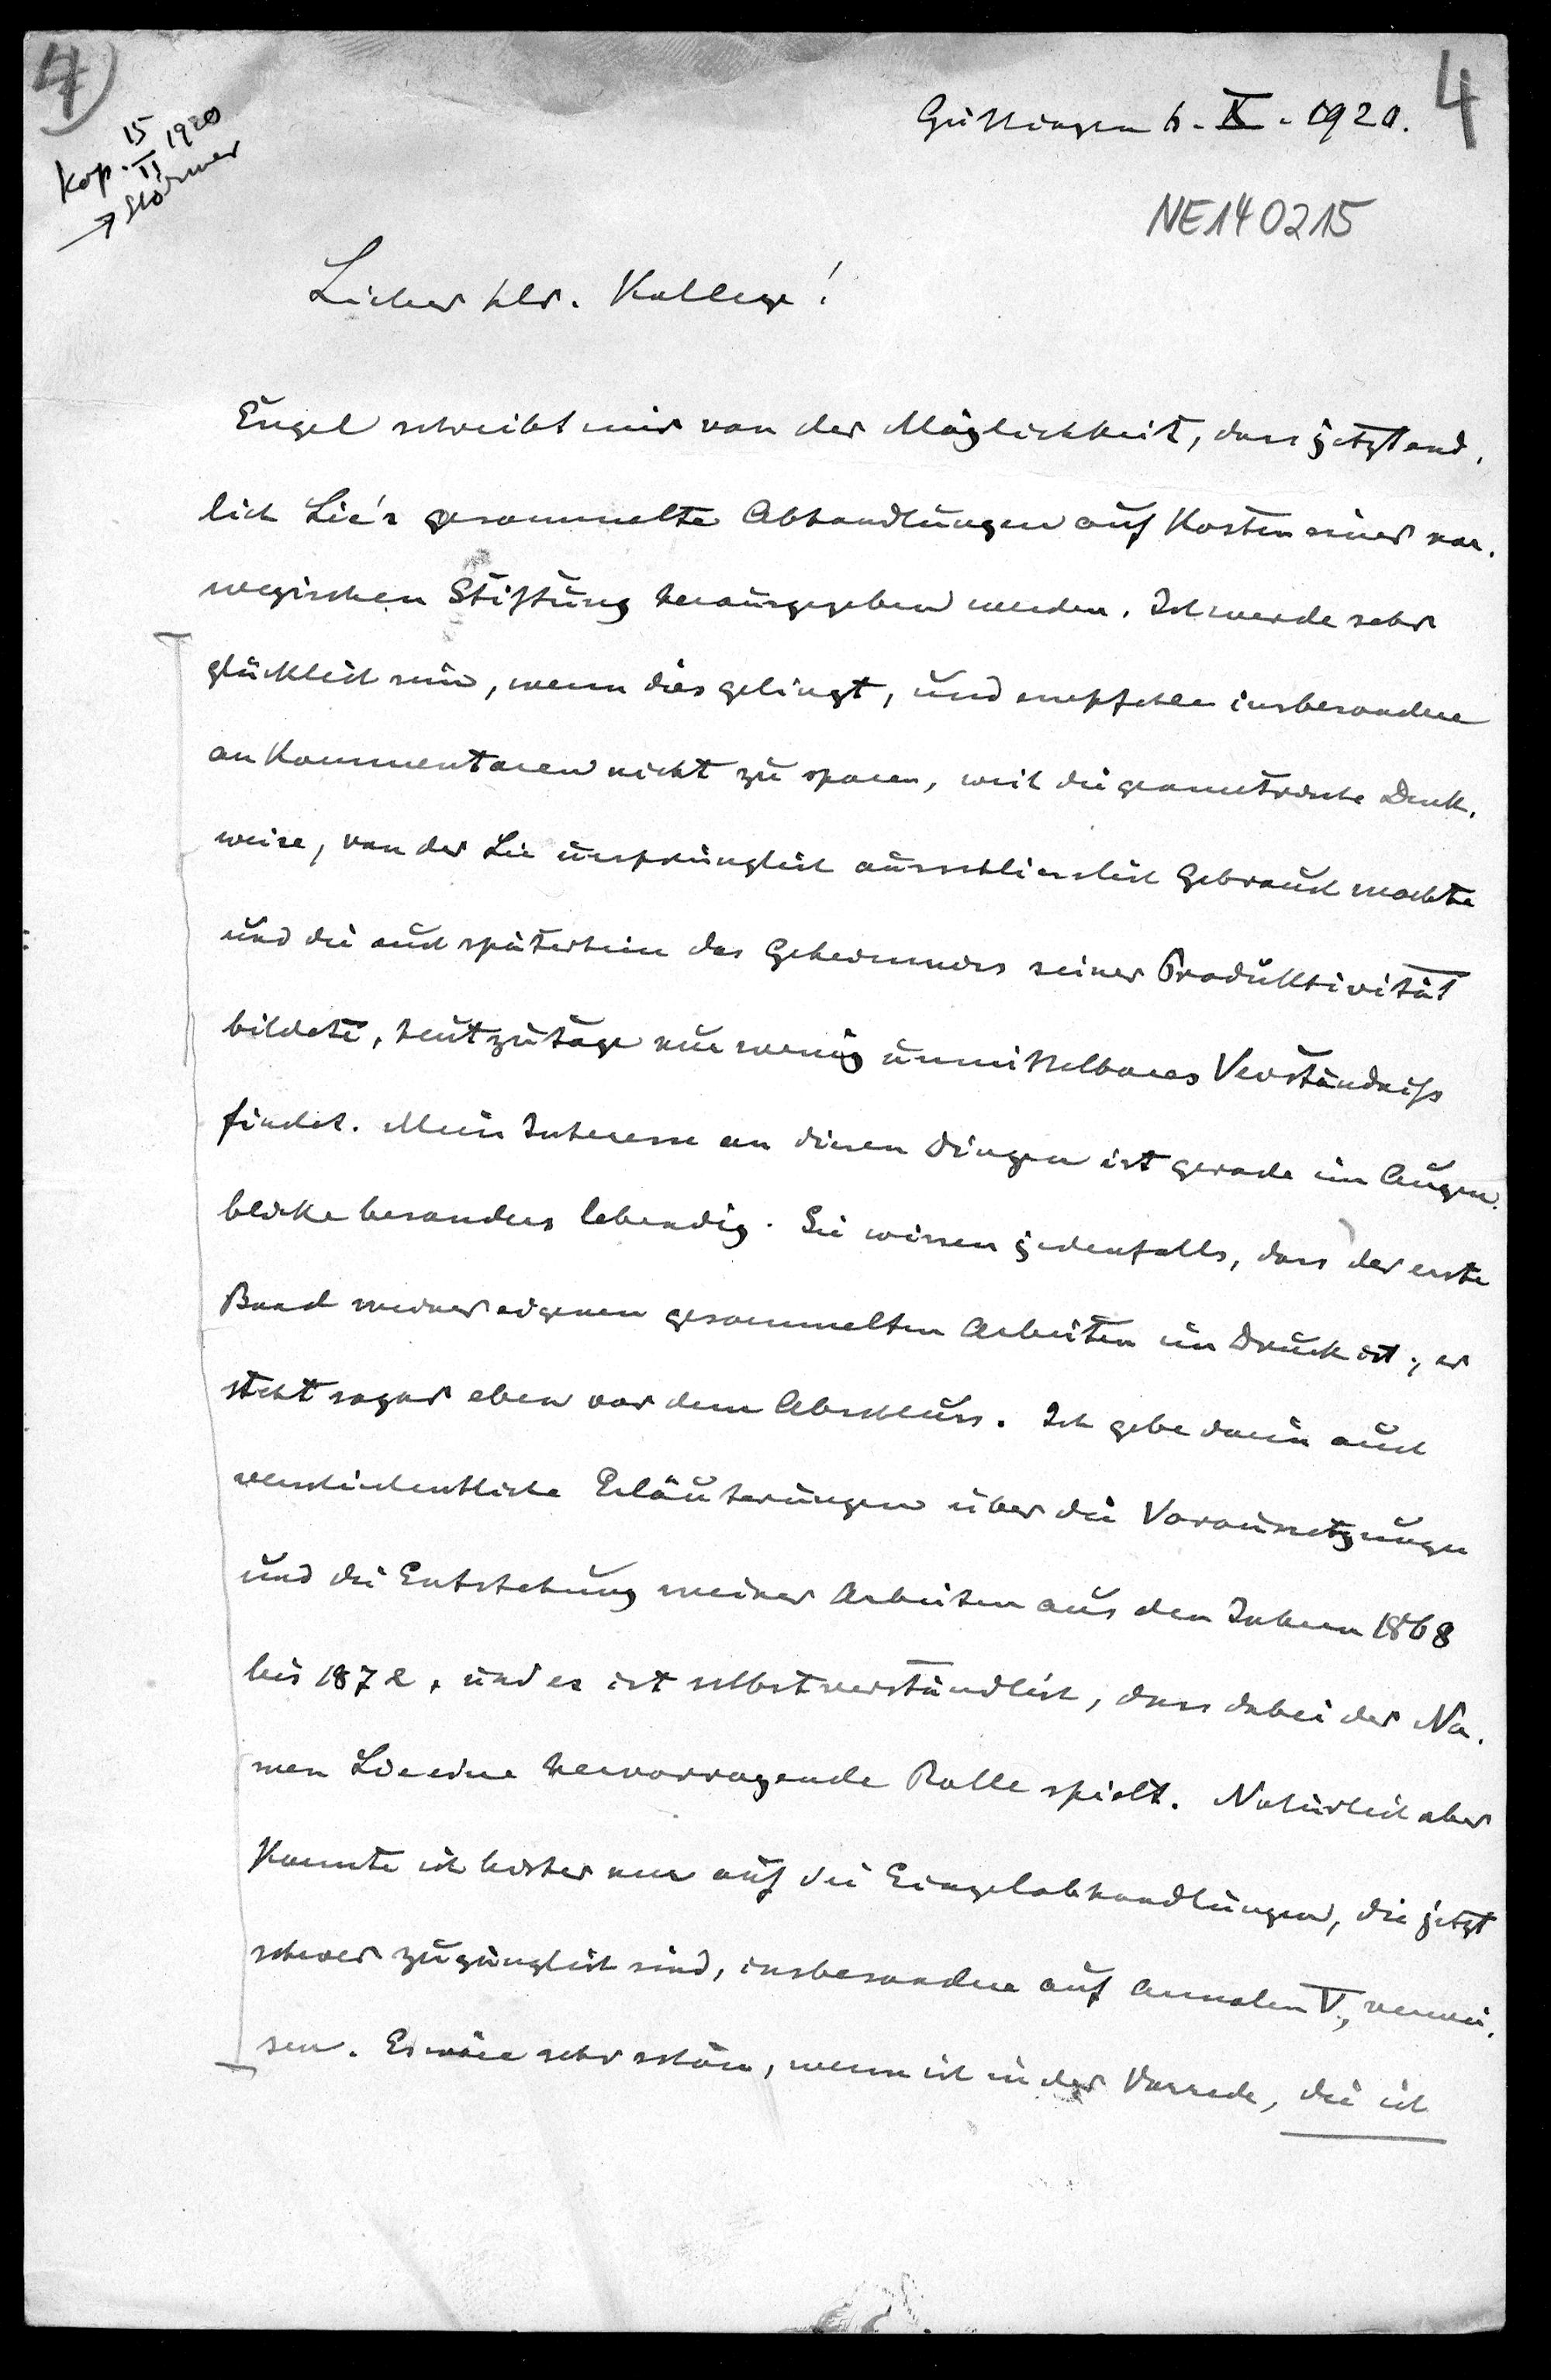 4)
4
Kop. 15/II 1920
→ Størmer
Göttingen 6. X. 1920.
NE140215
Lieber Hr. Kollege!
Engel schreibt mir von der Möglichkeit, dass jetzt end-
lich Lie's gesammelte Abhandlungen auf Kosten einer nor-
wegischen Stiftung herausgegeben werden. Ich werde sehr
glücklich sein, wenn dies gelingt, und empfehle insbesondere
an Kommentaren nicht zu sparen, weil die geometrische Denk-
weise, von der Lie ursprünglich ausschliesslich Gebrauch machte
und die auch späterhin das Geheimniss seiner Produktivität
bildete, heutzutage nur wenig unmittelbares Verständniss
findet. Mein Interesse an diesen Dingen ist gerade im Augen-
blicke besonders lebendig. Sie wissen jedenfalls, dass der erste
Band meiner eigenen gesammelten Arbeiten im Druck ist; er
steht sogar eben vor dem Abschluss. Ich gebe darin auch
verschiedentliche Erläuterungen über die Voraussetzungen
und die Entstehung meiner Arbeiten aus den Jahren 1868
bis 1872, und es ist selbstverständlich, dass dabei der Na-
men Lie eine hervorragende Rolle spielt. Natürlich aber
konnte ich bisher nur auf die Einzelabhandlungen, die jetzt
schwer zugänglich sind, insbesondere auf Annalen V, verwei-
sen. Es wäre sehr schön, wenn ich in der Vorrede, die ich